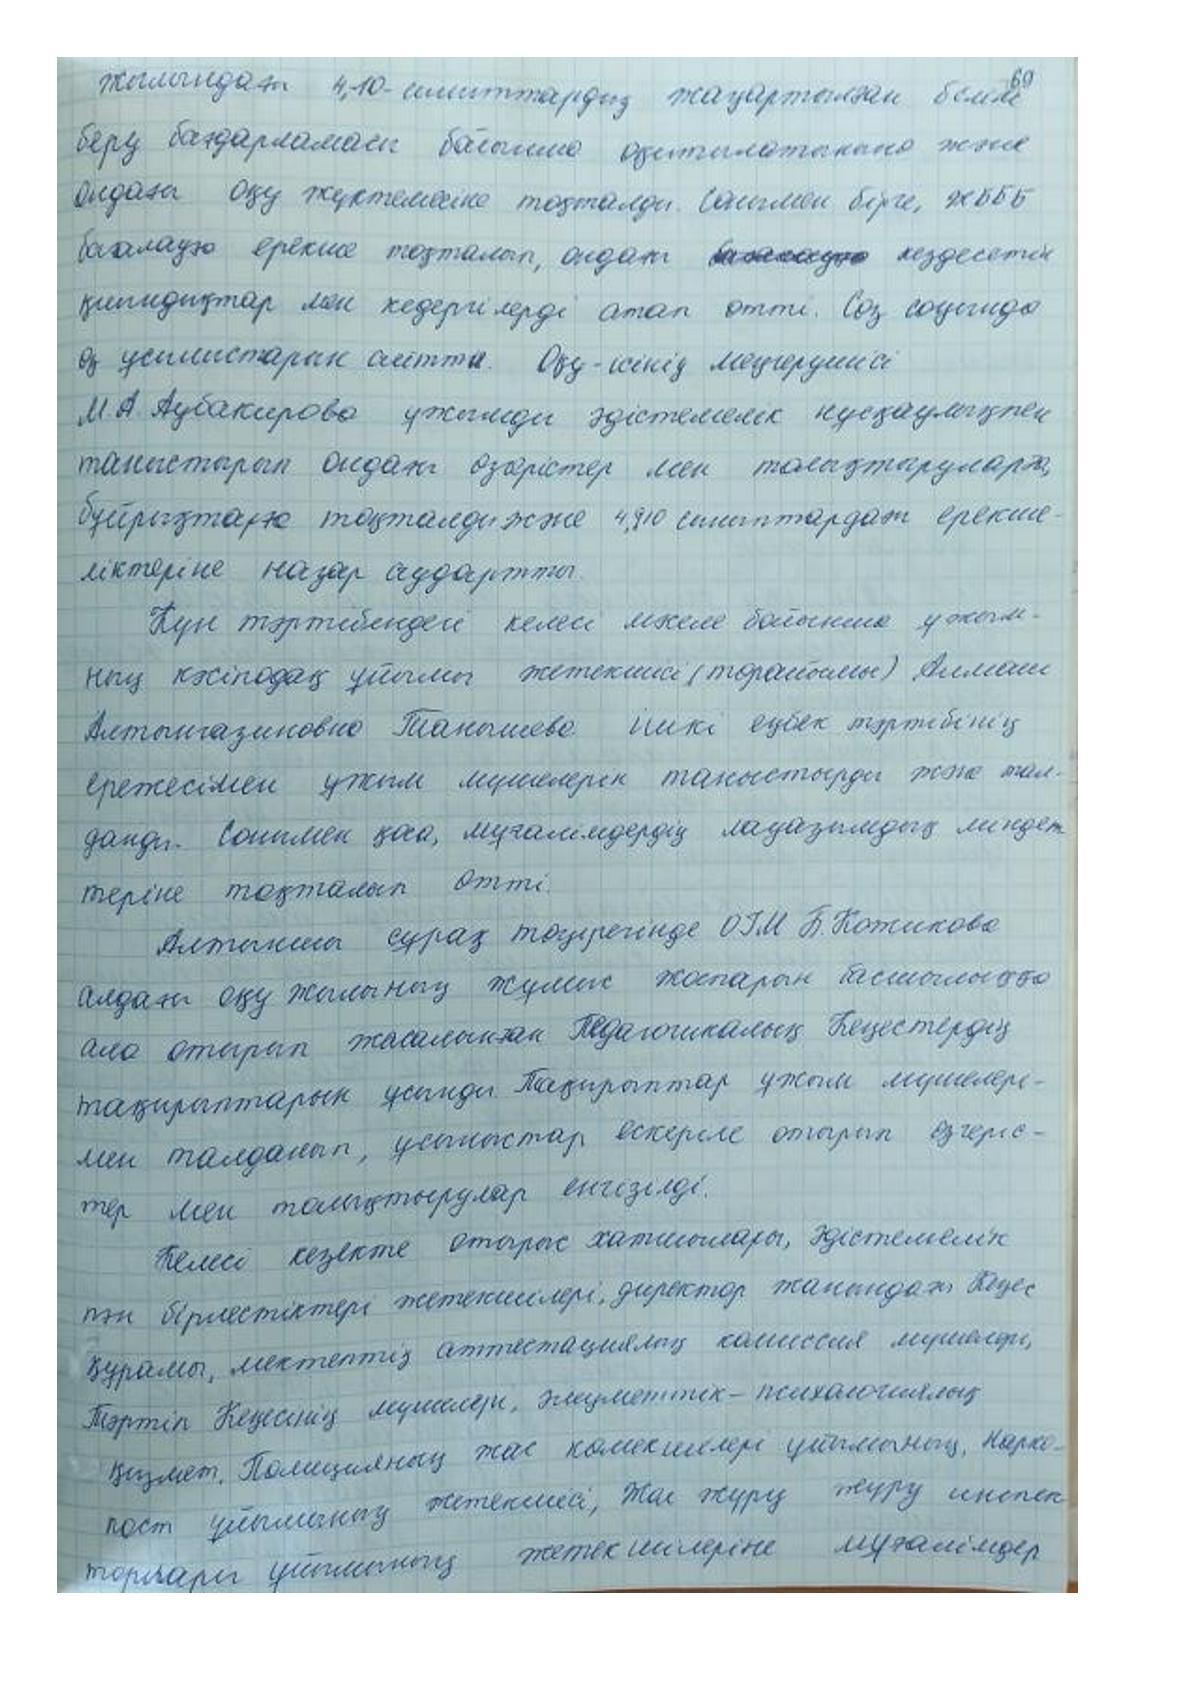 69
жылындағы 4,10-сыныптардың жаңартылған білім
беру бағдарламасы бойынша оқытылатынына және
ондағы оқу жүктемесіне тоқталды. Сонымен бірге, ЖББ
бағалауға ерекше тоқталып, ондағы кездесетін
қиындықтар мен кедергілерді атап өтті. Сөз соңында
өз ұсыныстарын айтты. Оқу-ісінің меңгерушісі
М.А. Аубакирова ұжымды әдістемелік нұсқаулықпен
таныстырып ондағы өзгерістер мен толықтыруларға,
бұйрықтарға тоқталды және 4,9,10 сыныптардағы ерекше-
ліктеріне назар аудартты.
Күн тәртібіндегі келесі мәселе бойынша ұжым-
ның кәсіподақ ұйымы жетекшісі (төрайымы) Алмаш
Алтынгазиновна Танышева ішкі еңбек тәртібінің
ережесімен ұжым мүшелерін таныстырды және тал-
данды. Сонымен қоса, мұғалімдердің лауазымдық міндет
теріне тоқталып өтті.
Алтыншы сұрақ төңірегінде ОІМ Б.Кожикова
алдағы оқу жылының жұмыс жоспарын басшылыққа
ала отырып жасалынған Педагогикалық Кеңестердің
тақырыптарын ұсынды. Тақырыптар ұжым мүшелері-
мен талданып, ұсыныстар ескеріле отырып өзгеріс-
тер мен толықтырулар енгізілді.
Келесі кезекте отырыс хатшылары, әдістемелік
пән бірлестіктері жетекшілері, директор жанындағы Кеңес
құрамы, мектептің аттестациялық комиссия мүшелері,
Тәртіп Кеңесінің мүшелері, әлеуметтік-психологиялық
қызмет, Полицияның жас көмекшілері ұйымының, Нарко-
пост ұйымының жетекшісі, Жол жүру инспек
торлары ұйымының жетекшілеріне мұғалімдер